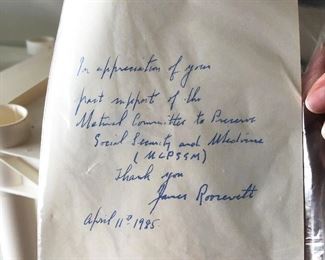 In appreciation of your
past support of the
National Committee to Preserve
Social Security and Medicine
(NCPSSM)
Thank you
James Roosevelt
April 11º 1985